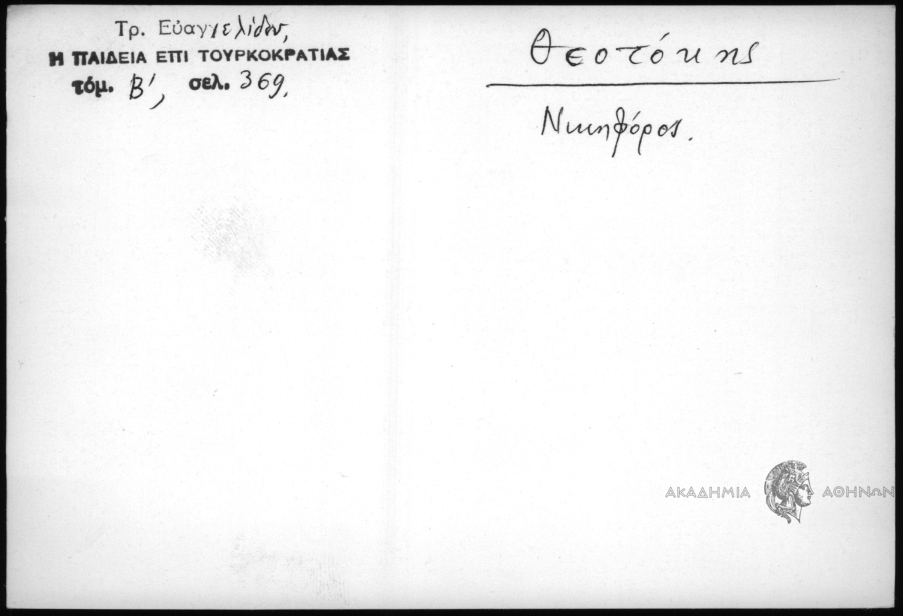 Τρ. Εὐαγγελίδου,
Η ΠΑΙΔΕΙΑ ΕΠΙ ΤΟΥΡΚΟΚΡΑΤΙΑΣ
τόμ. Β', σελ. 369.
Θεοτόκης
Νικηφόρος.
ΑΚΑΔΗΜΙΑ ΑΘΗΝΩΝ